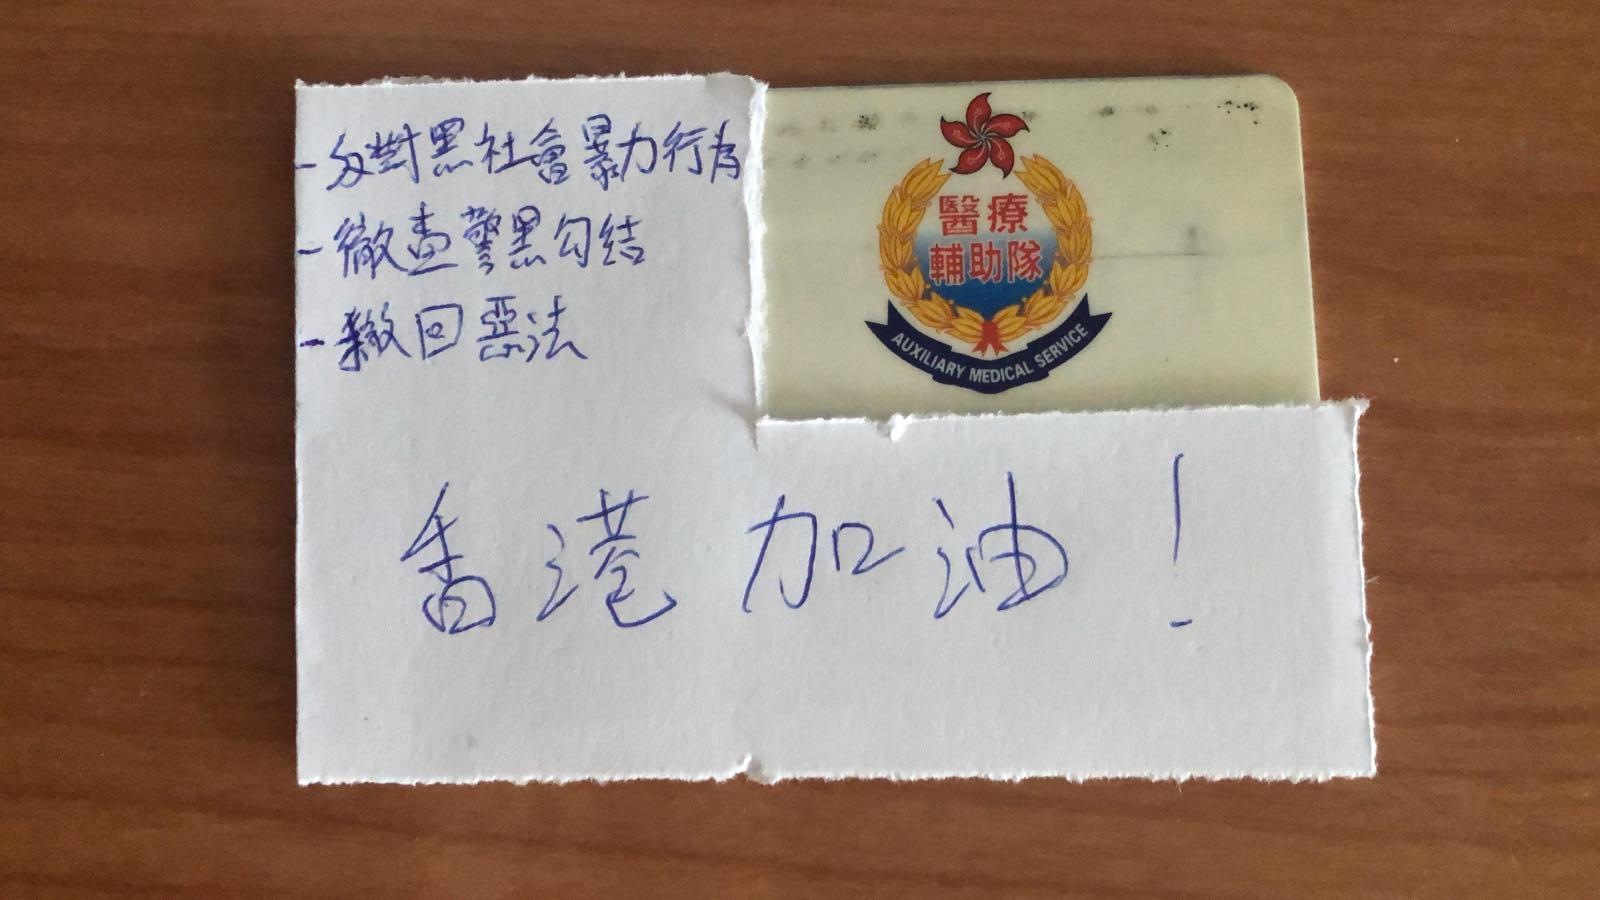 - 反對黑社會暴力行為
- 徹查警黑勾結
- 撤回惡法
醫療
輔助隊
AUXILIARY MEDICAL SERVICE
香港加油！